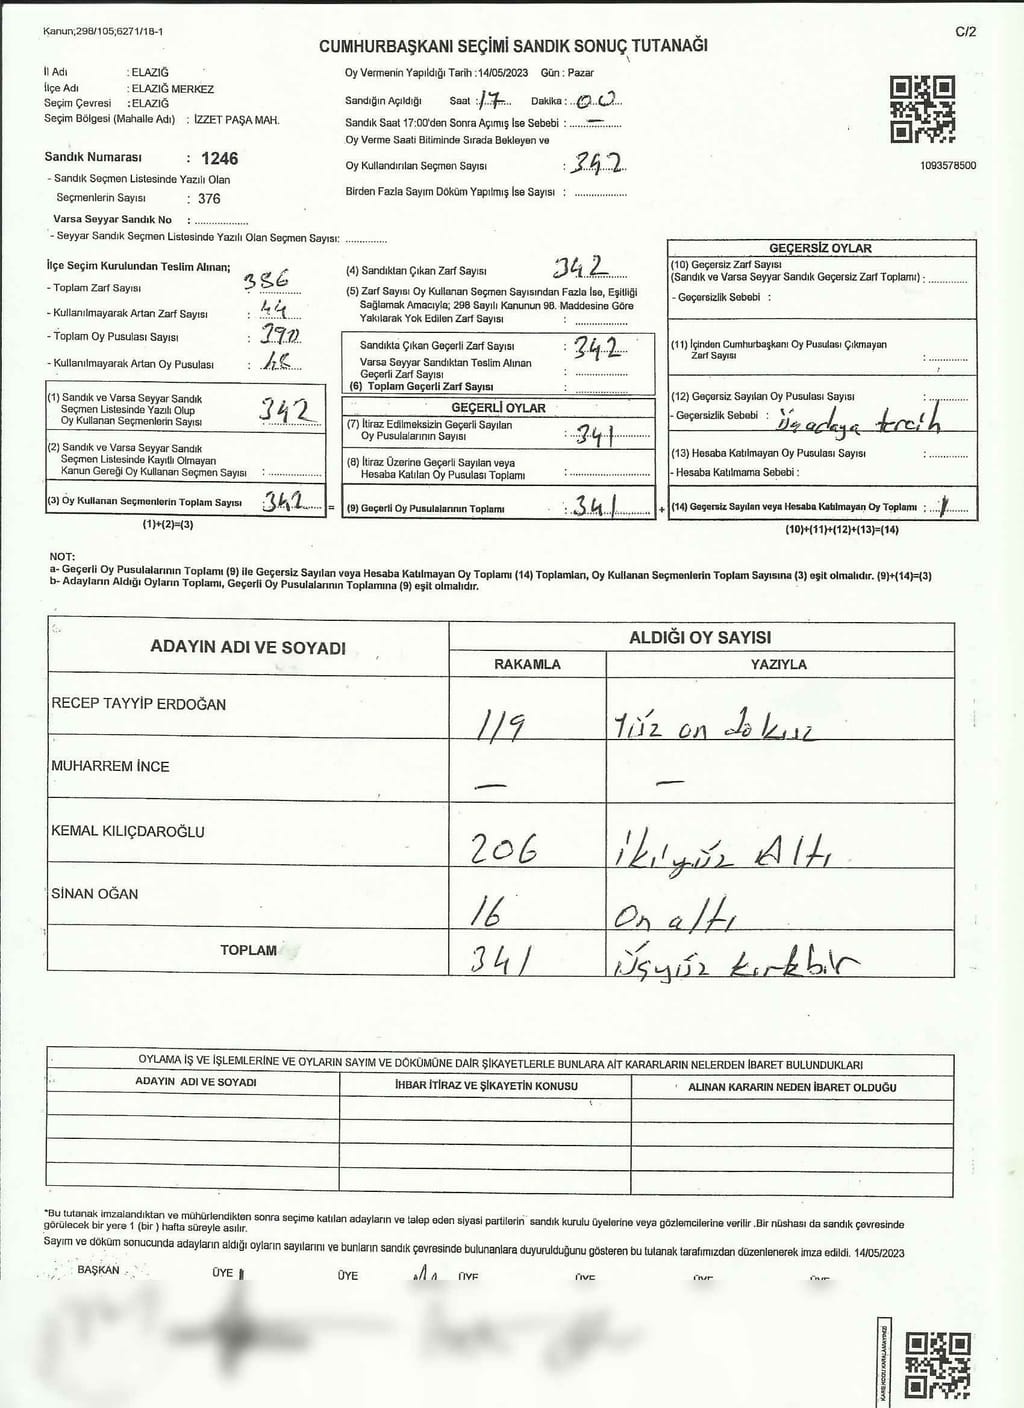 Kanun;298/105;6271/18-1
C/2
CUMHURBAŞKANI SEÇİMİ SANDIK SONUÇ TUTANAĞI
İl Adı : ELAZIĞ
İlçe Adı : ELAZIĞ MERKEZ
Seçim Çevresi : ELAZIĞ
Seçim Bölgesi (Mahalle Adı) : İZZET PAŞA MAH.
Sandık Numarası : 1246
- Sandık Seçmen Listesinde Yazılı Olan
Seçmenlerin Sayısı : 376
Varsa Seyyar Sandık No : ..................
- Seyyar Sandık Seçmen Listesinde Yazılı Olan Seçmen Sayısı: ..............
Oy Vermenin Yapıldığı Tarih :14/05/2023 Gün : Pazar
Sandığın Açıldığı Saat : 17 Dakika : 00
Sandık Saat 17:00'den Sonra Açımış İse Sebebi : —
Oy Verme Saati Bitiminde Sırada Bekleyen ve
Oy Kullandırılan Seçmen Sayısı : 342
Birden Fazla Sayım Döküm Yapılmış İse Sayısı : ..................
1093578500
İlçe Seçim Kurulundan Teslim Alınan;
- Toplam Zarf Sayısı : 386
- Kullanılmayarak Artan Zarf Sayısı : 44
- Toplam Oy Pusulası Sayısı : 390
- Kullanılmayarak Artan Oy Pusulası : 48
(1) Sandık ve Varsa Seyyar Sandık
Seçmen Listesinde Yazılı Olup
Oy Kullanan Seçmenlerin Sayısı 342
(2) Sandık ve Varsa Seyyar Sandık
Seçmen Listesinde Kayıtlı Olmayan
Kanun Gereği Oy Kullanan Seçmen Sayısı : ..................
(3) Oy Kullanan Seçmenlerin Toplam Sayısı : 342 =
(1)+(2)=(3)
(4) Sandıktan Çıkan Zarf Sayısı 342
(5) Zarf Sayısı Oy Kullanan Seçmen Sayısından Fazla İse, Eşitliği
Sağlamak Amacıyla; 298 Sayılı Kanunun 98. Maddesine Göre
Yakılarak Yok Edilen Zarf Sayısı : ..................
Sandıkta Çıkan Geçerli Zarf Sayısı : 342
Varsa Seyyar Sandıktan Teslim Alınan
Geçerli Zarf Sayısı : ..................
(6) Toplam Geçerli Zarf Sayısı : ..................
GEÇERLİ OYLAR
(7) İtiraz Edilmeksizin Geçerli Sayılan
Oy Pusulalarının Sayısı : 341
(8) İtiraz Üzerine Geçerli Sayılan veya
Hesaba Katılan Oy Pusulası Toplamı : ..................
(9) Geçerli Oy Pusulalarının Toplamı : 341 +
GEÇERSİZ OYLAR
(10) Geçersiz Zarf Sayısı
(Sandık ve Varsa Seyyar Sandık Geçersiz Zarf Toplamı) : ..............
- Geçersizlik Sebebi :
(11) İçinden Cumhurbaşkanı Oy Pusulası Çıkmayan
Zarf Sayısı : ..............
(12) Geçersiz Sayılan Oy Pusulası Sayısı : ..............
- Geçersizlik Sebebi : üç adaya tercih
(13) Hesaba Katılmayan Oy Pusulası Sayısı : ..............
- Hesaba Katılmama Sebebi :
(14) Geçersiz Sayılan veya Hesaba Katılmayan Oy Toplamı : 1
(10)+(11)+(12)+(13)=(14)
NOT:
a- Geçerli Oy Pusulalarının Toplamı (9) ile Geçersiz Sayılan veya Hesaba Katılmayan Oy Toplamı (14) Toplamları, Oy Kullanan Seçmenlerin Toplam Sayısına (3) eşit olmalıdır. (9)+(14)=(3)
b- Adayların Aldığı Oyların Toplamı, Geçerli Oy Pusulalarının Toplamına (9) eşit olmalıdır.
ADAYIN ADI VE SOYADI
ALDIĞI OY SAYISI
RAKAMLA YAZIYLA
RECEP TAYYİP ERDOĞAN 119 Yüz on dokuz
MUHARREM İNCE — —
KEMAL KILIÇDAROĞLU 206 İkiyüz Altı
SİNAN OĞAN 16 On altı
TOPLAM 341 Üçyüz kırkbir
OYLAMA İŞ VE İŞLEMLERİNE VE OYLARIN SAYIM VE DÖKÜMÜNE DAİR ŞİKAYETLERLE BUNLARA AİT KARARLARIN NELERDEN İBARET BULUNDUKLARI
ADAYIN ADI VE SOYADI İHBAR İTİRAZ VE ŞİKAYETİN KONUSU ALINAN KARARIN NEDEN İBARET OLDUĞU
*Bu tutanak imzalandıktan ve mühürlendikten sonra seçime katılan adayların ve talep eden siyasi partilerin sandık kurulu üyelerine veya gözlemcilerine verilir .Bir nüshası da sandık çevresinde
görülecek bir yere 1 (bir ) hafta süreyle asılır.
Sayım ve döküm sonucunda adayların aldığı oyların sayılarını ve bunların sandık çevresinde bulunanlara duyurulduğunu gösteren bu tutanak tarafımızdan düzenlenerek imza edildi. 14/05/2023
BAŞKAN ÜYE ÜYE ÜYE ÜYE ÜYE ÜYE